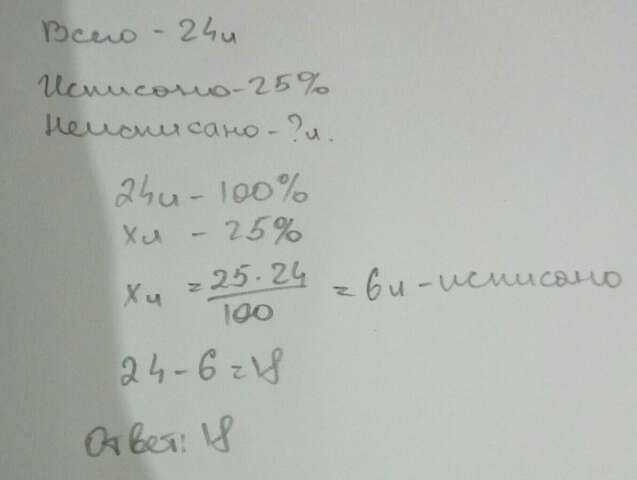 Всего - 24л
Исписано - 25%
Неисписано - ?л.
24л - 100%
xл - 25%
xл = 25·24/100 = 6л - исписано
24 - 6 = 18
Ответ: 18